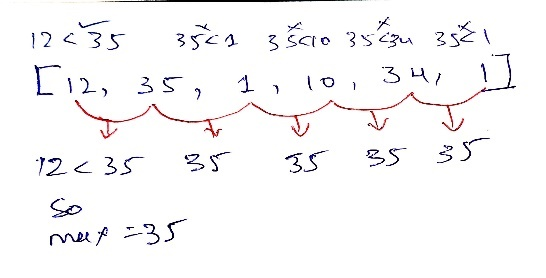 12 < 35 35 < 1 35 < 10 35 < 34 35 < 1
[12, 35, 1, 10, 34, 1]
12 < 35 35 35 35 35
So
max = 35